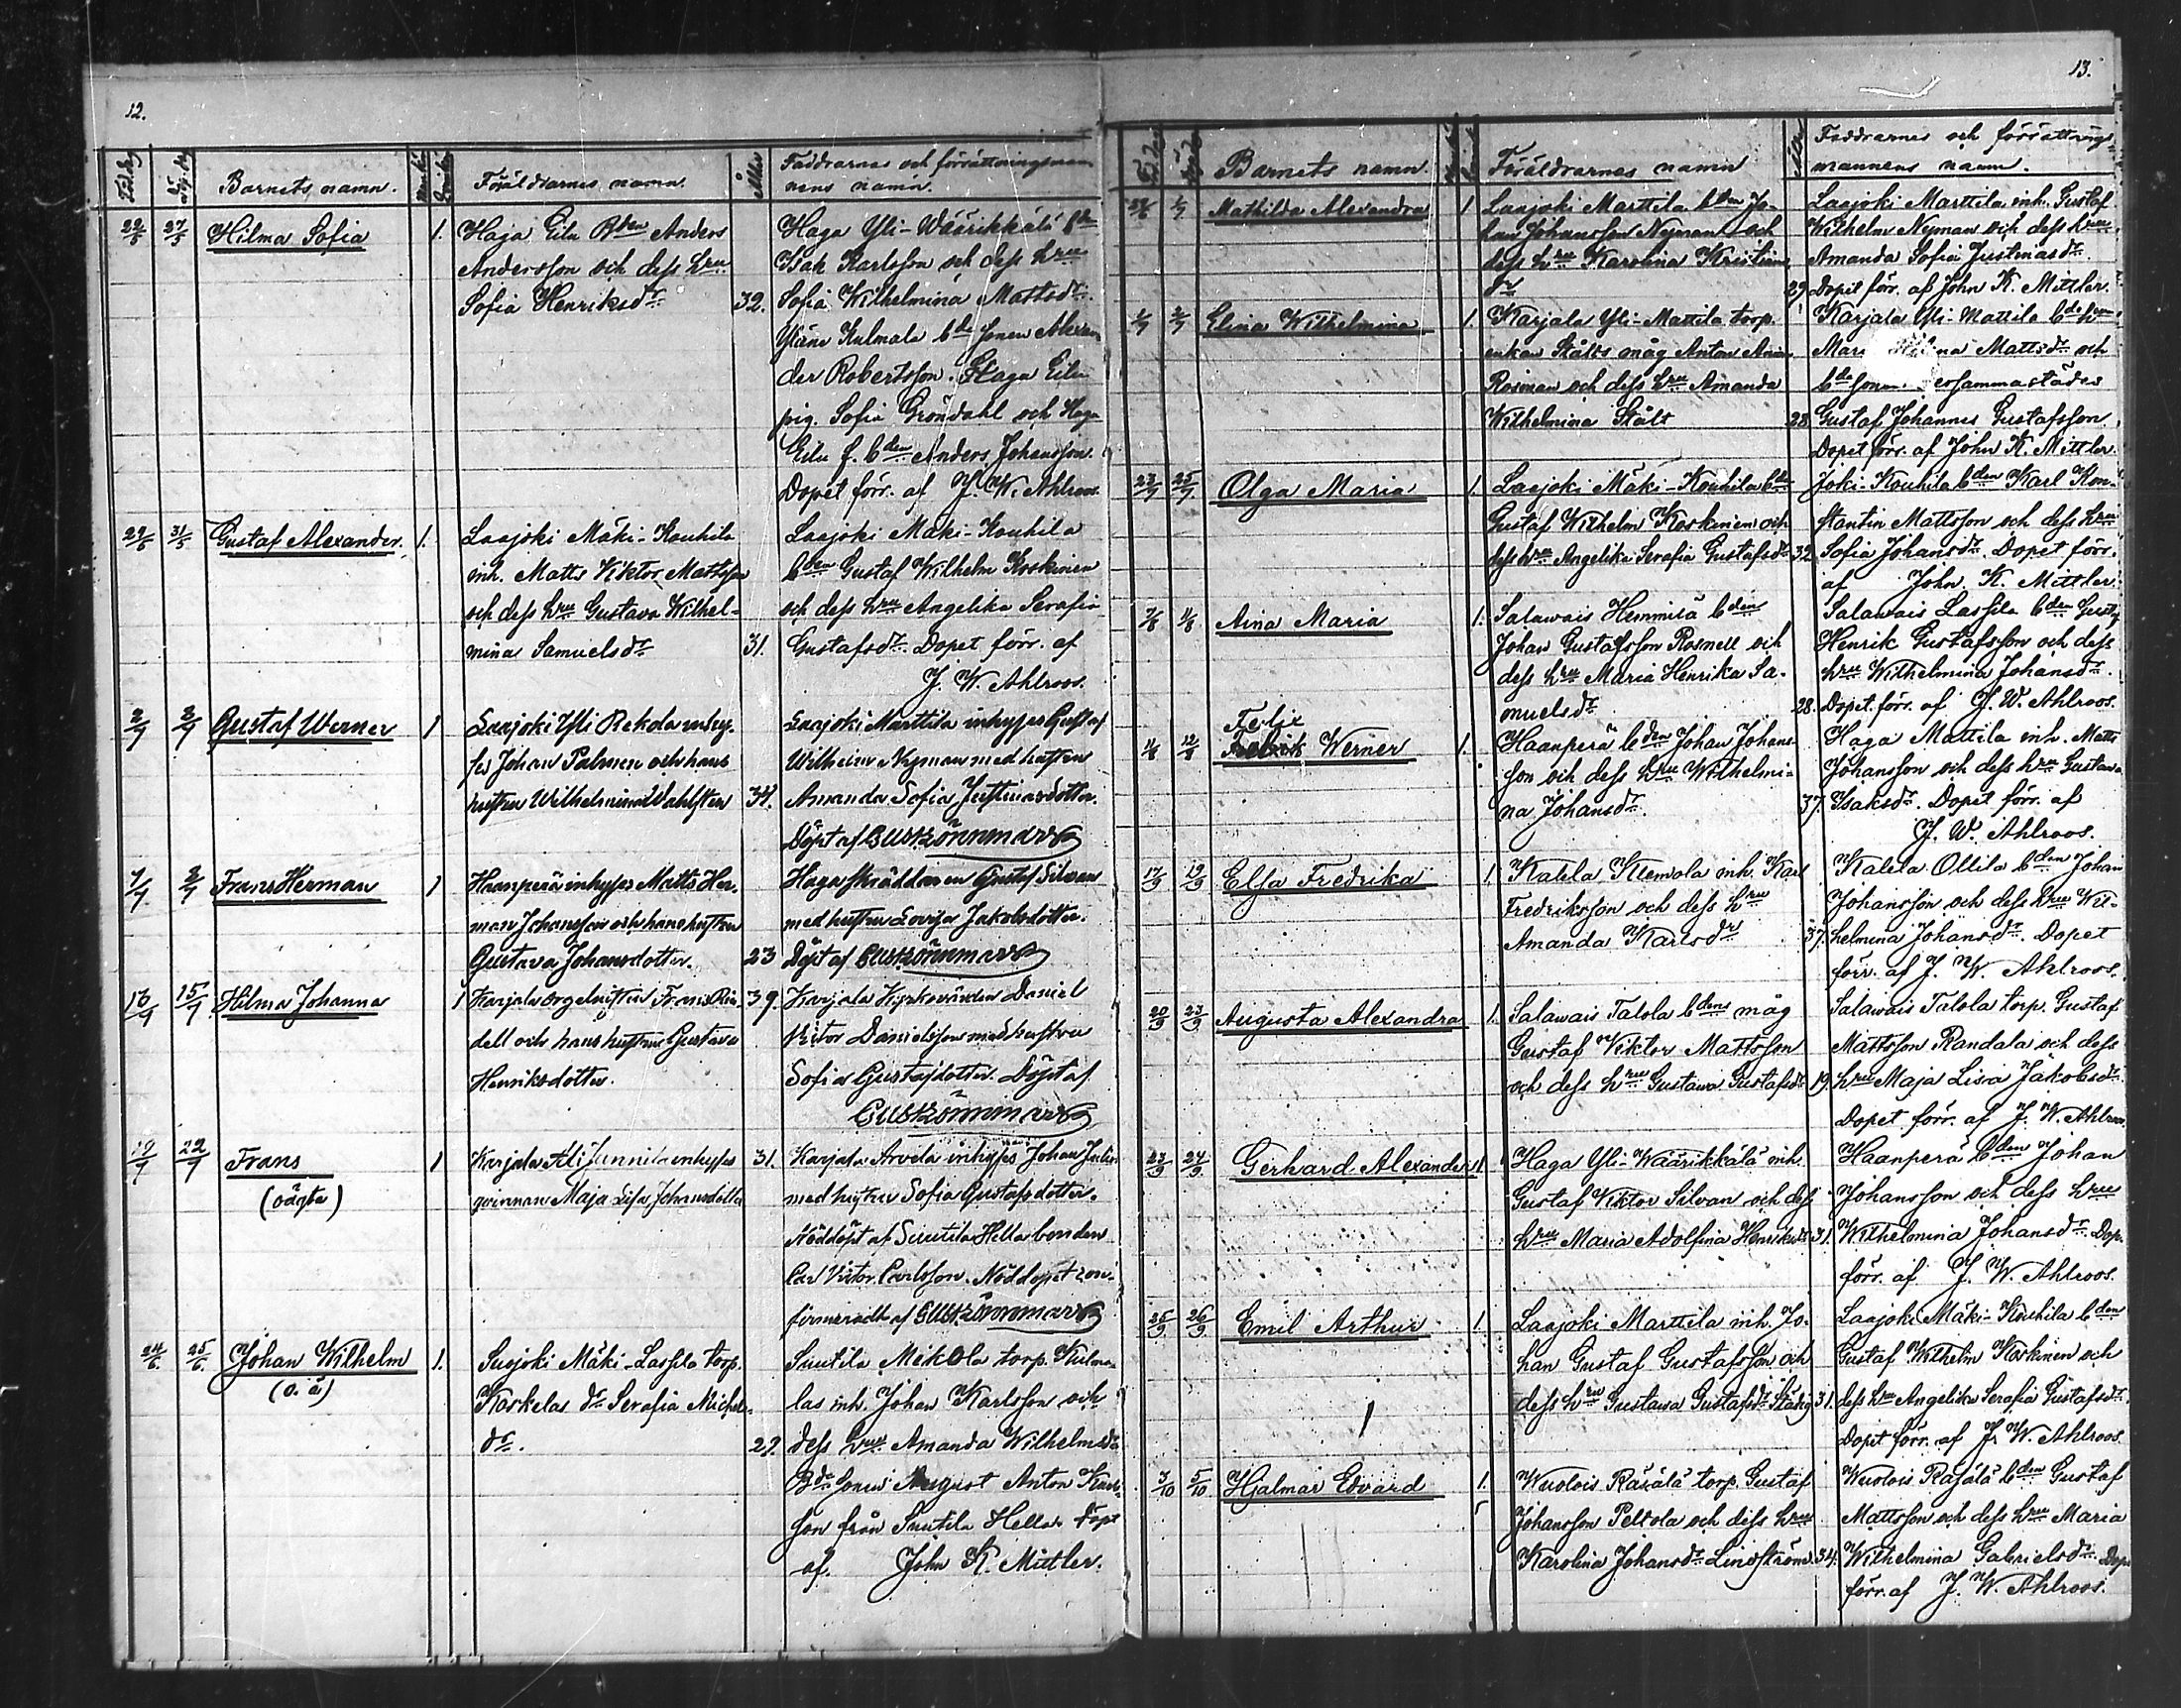 12.
Barnets namn.
Föräldrarnes namn.
Ålder
Faddrarnes och förrättningsman-
nens namn.
22/5 27/5 Hilma Sofia 1. Haga Eilu Bden Anders
Andersson och dess hru
Sofia Henriksdr 32.
Haga Yli-Wäärikkälä bde
Isak Karlsson och dess hru
Sofia Wilhelmina Mattsdr.
Yläne Kulmala bde sonen Alexan
der Robertsson. Haga Eilu
pig. Sofia Gröndahl och Haga
Eilu f. bden Anders Johansson.
Dopet förr. af J. W. Ahlroos.
29/5 31/5 Gustaf Alexander. 1. Laajoki Mäki-Kouhila
inh. Matts Viktor Mattsson
och dess hru Gustava Wilhel-
mina Samuelsdr 31.
Laajoki Mäki-Kouhila
bden Gustaf Wilhelm Koskinen
och dess hru Angelika Serafia
Gustafsdr. Dopet förr. af
J. W. Ahlroos.
2/7 3/7 Gustaf Werner 1 Laajoki Yli Rekola inhy-
ses Johan Palmen och hans
hustru Wilhelmina Dahlsten 34.
Laajoki Marttila inhyses Gustaf
Wilhelm Nyman med hustru
Amanda Sofia Justinasdotter.
Döpt af
7/7 8/7 Frans Herman 1 Haanperä inhyses Matts Her-
man Johansson och hans hustru
Gustava Johansdotter. 23
Haga skräddaren Gustaf Silvan
med hustru Lovisa Jakobsdotter.
Döpt af
13/7 15/7 Hilma Johanna 1 Karjala orgelnisten Frans Rin-
dell och hans hustru Gustava
Henriksdotter. 39.
Karjala Kyrkovärden Daniel
Victor Danielsson med hustru
Sofia Gustafsdotter. Döpt af
19/7 22/7 Frans 1
(oägta)
Karjala Ali Junnila inhyses
qvinnan Maja Lisa Johansdotter 31.
Karjala Arvela inhyses Johan Julin
med hustru Sofia Gustafsdotter.
Nöddöpt af Suutila Hella bonden
Carl Victor Carlsson. Nöddopet con-
firmeradt af
24/6 25/6 Johan Wilhelm 1.
(o. ä)
Suojoki Mäki-Lassila torp.
Koskelas dr Serafia Michels-
dr. 29.
Suutila Mikola torp. Kulma-
las inh. Johan Karlsson och
dess hru Amanda Wilhelmsdr
Bde sonen August Anton Karls-
son från Suutila Hella. Döpt
af John K. Mittler.
13.
Barnets namn.
Föräldrarnes namn
Faddrarnes och förrättnings-
mannens namn.
1/7 Mathilda Alexandra 1 Laajoki Marttila bden Jo-
han Johansson Nyman och
dess hru Karolina Kristians
dr 29.
Laajoki Marttila inh. Gustaf
Wilhelm Nyman och dess hru
Amanda Sofia Justinasdr.
Dopet förr. af John K. Mittler.
1/7 2/7 Elina Wilhelmina 1. Karjala Yli-Mattila torp.
enkan Ståls måg Anton
Rosman och dess hru Amanda
Wilhelmina Stålt 28
Karjala Yli-Mattila bde hru
Mattsdr och
bde sonen
Gustaf Johannes Gustafsson.
Dopet förr. af John K. Mittler.
23/7 25/7 Olga Maria 1. Laajoki Mäki-Kouhila bde
Gustaf Wilhelm Koskinen och
dess hru Angelika Serafia Gustafsdr 32.
joki-Kouhila bden Karl Kon-
stantin Mattsson och dess hru
Sofia Johansdr. Dopet förr.
af John K. Mittler.
7/8 11/8 Aina Maria 1. Salawais Hemmilä bden
Johan Gustafsson Rosnell och
dess hru Maria Henrika Sa-
muelsdr 28.
Salawais Lassila bden Gustaf
Henrik Gustafsson och dess
hru Wilhelmina Johansdr.
Dopet förr. af J. W. Ahlroos.
Felix
11/8 12/8 Werner 1. Haanperä bden Johan Johans-
son och dess hru Wilhelmi-
na Johansdr. 37.
Haga Mattila inh. Matts
Johansson och dess hru Gustava
Isaksdr. Dopet förr. af
J. W. Ahlroos.
17/9 19/9 Elsa Fredrika 1. Kalela Klemola inh. Karl
Fredriksson och dess hru
Amanda Karlsdr 37.
Kalela Ollila bden Johan
Johansson och dess hru Wil-
helmina Johansdr. Dopet
förr. af J. W. Ahlroos.
20/9 23/9 Augusta Alexandra 1. Salawais Talola bdens måg
Gustaf Viktor Mattsson
och dess hru Gustava Gustafsdr 19.
Salawais Talola torp. Gustaf
Mattsson Randala och dess
hru Maja Lisa Jakobsdr.
Dopet förr. af J. W. Ahlroos.
23/9 24/9 Gerhard Alexander 1. Haga Yli-Wäärikkälä inh.
Gustaf Viktor Silvan och dess
hru Maria Adolfina Henriksdr 31.
Haanperä bden Johan
Johansson och dess hru
Wilhelmina Johansdr Dop.
förr. af J. W. Ahlroos.
25/9 26/9 Emil Arthur 1. Laajoki Marttila inh. Jo-
han Gustaf Gustafsson och
dess hru Gustava Gustafsdr Ståhlg 31.
Laajoki Mäki-Kouhila bden
Gustaf Wilhelm Koskinen och
dess hru Angelika Serafia Gustafsdr.
Dopet förr. af J. W. Ahlroos.
3/10 5/10 Hjalmar Edvard 1. Wuolois Räsälä torp. Gustaf
Johansson Peltola och dess hru
Karolina Johansdr Lindström 34.
Wuolois Räsälä bden Gustaf
Mattsson och dess hru Maria
Wilhelmina Gabrielsdr. Dopet
förr. af J. W. Ahlroos.